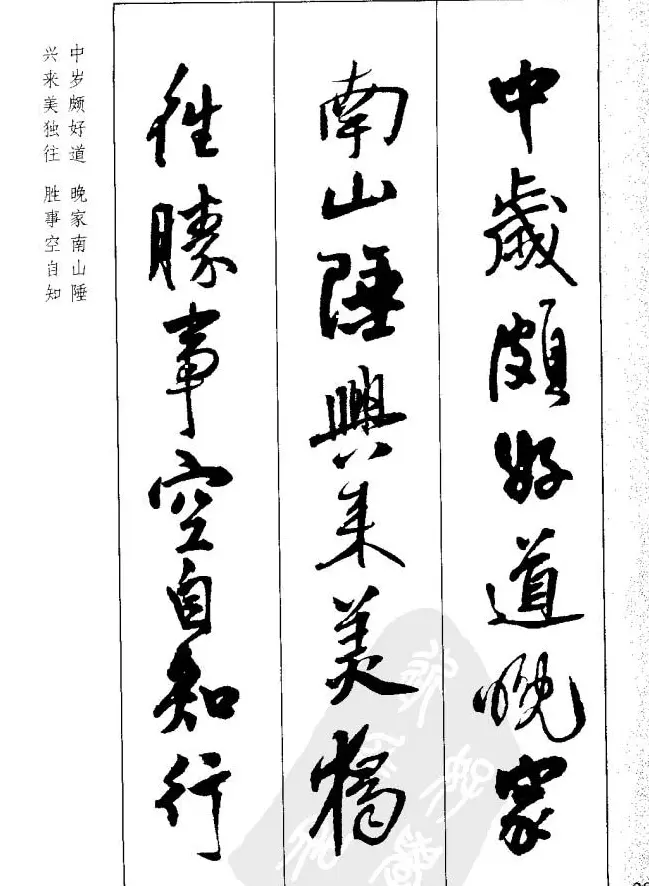 中歲頗好道晚家
南山陲興来美獨
往勝事空自知行
中岁颇好道 晚家南山陲
兴来美独往 胜事空自知